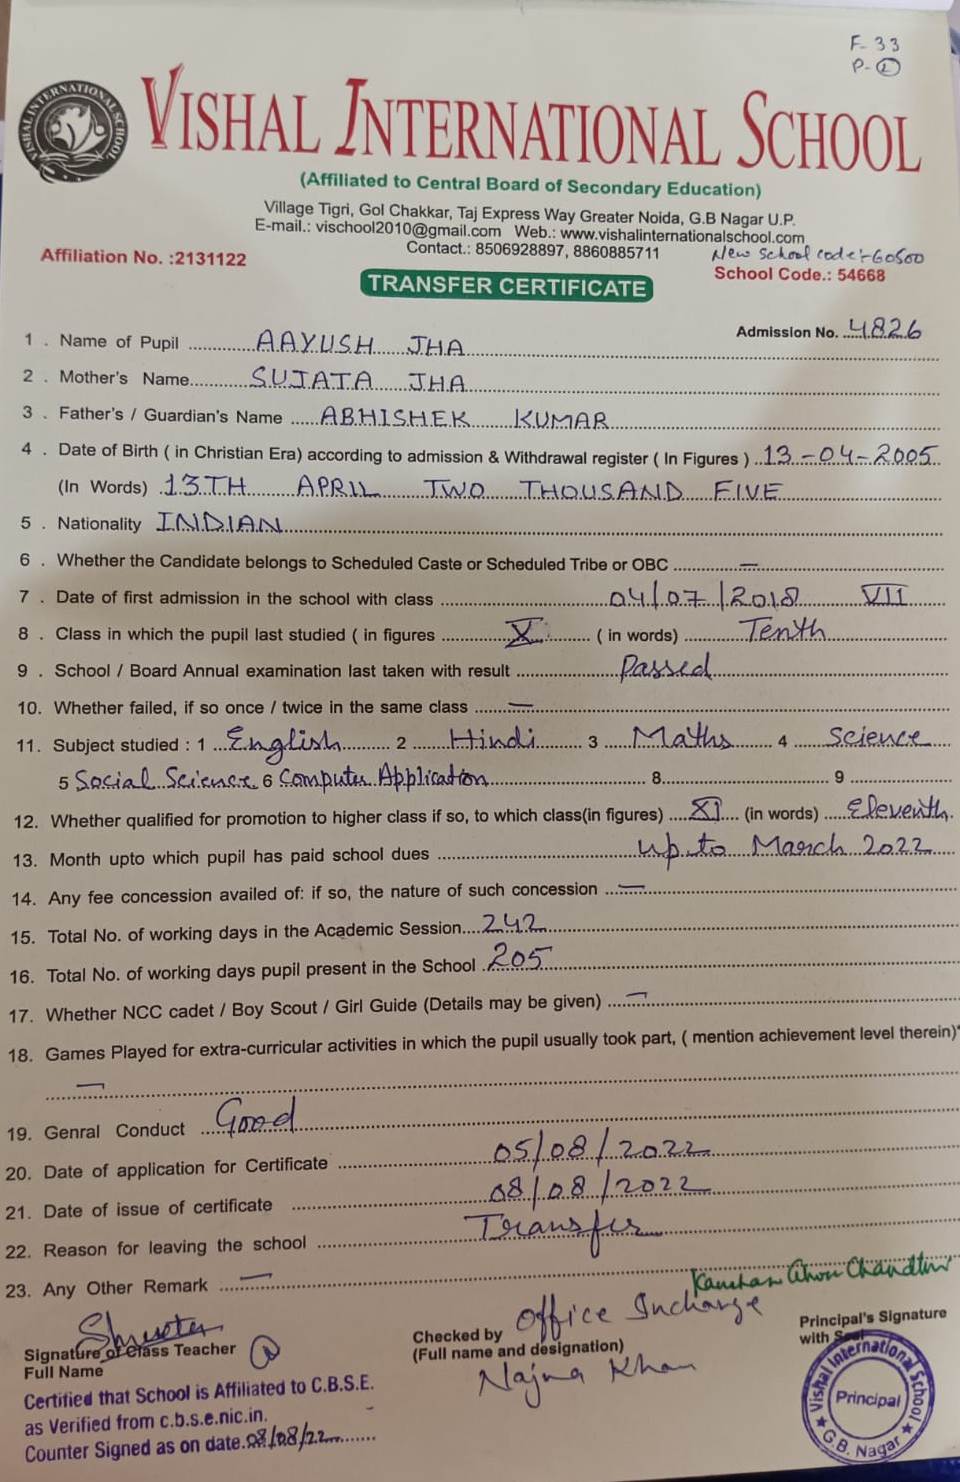 F-33
P-2
VISHAL INTERNATIONAL SCHOOL
VISHAL INTERNATIONAL SCHOOL
(Affiliated to Central Board of Secondary Education)
Village Tigri, Gol Chakkar, Taj Express Way Greater Noida, G.B Nagar U.P.
E-mail.: vischool2010@gmail.com Web.: www.vishalinternationalschool.com
Contact.: 8506928897, 8860885711 New School code:-60500
Affiliation No. :2131122 School Code.: 54668
TRANSFER CERTIFICATE
Admission No. 4826
1 . Name of Pupil AAYUSH JHA
2 . Mother's Name SUJATA JHA
3 . Father's / Guardian's Name ABHISHEK KUMAR
4 . Date of Birth ( in Christian Era) according to admission & Withdrawal register ( In Figures ) 13-04-2005
(In Words) 13TH APRIL TWO THOUSAND FIVE
5 . Nationality INDIAN
6 . Whether the Candidate belongs to Scheduled Caste or Scheduled Tribe or OBC —
7 . Date of first admission in the school with class 04/07/2018 VII
8 . Class in which the pupil last studied ( in figures X ( in words) Tenth
9 . School / Board Annual examination last taken with result Passed
10. Whether failed, if so once / twice in the same class —
11. Subject studied : 1 English 2 Hindi 3 Maths 4 Science
5 Social Science 6 Computer Application 8 9
12. Whether qualified for promotion to higher class if so, to which class(in figures) XI (in words) Eleventh.
13. Month upto which pupil has paid school dues up to March 2022
14. Any fee concession availed of: if so, the nature of such concession —
15. Total No. of working days in the Academic Session 242
16. Total No. of working days pupil present in the School 205
17. Whether NCC cadet / Boy Scout / Girl Guide (Details may be given) —
18. Games Played for extra-curricular activities in which the pupil usually took part, ( mention achievement level therein)
—
19. Genral Conduct Good
20. Date of application for Certificate 05/08/2022
21. Date of issue of certificate 08/08/2022
22. Reason for leaving the school Transfer
23. Any Other Remark —
Signature of Class Teacher
Full Name
Checked by Office Incharge
(Full name and designation)
Najma Khan
Principal's Signature
with Seal
Certified that School is Affiliated to C.B.S.E.
as Verified from c.b.s.e.nic.in.
Counter Signed as on date 08/08/22
Vishal International School
Principal
G.B. Nagar